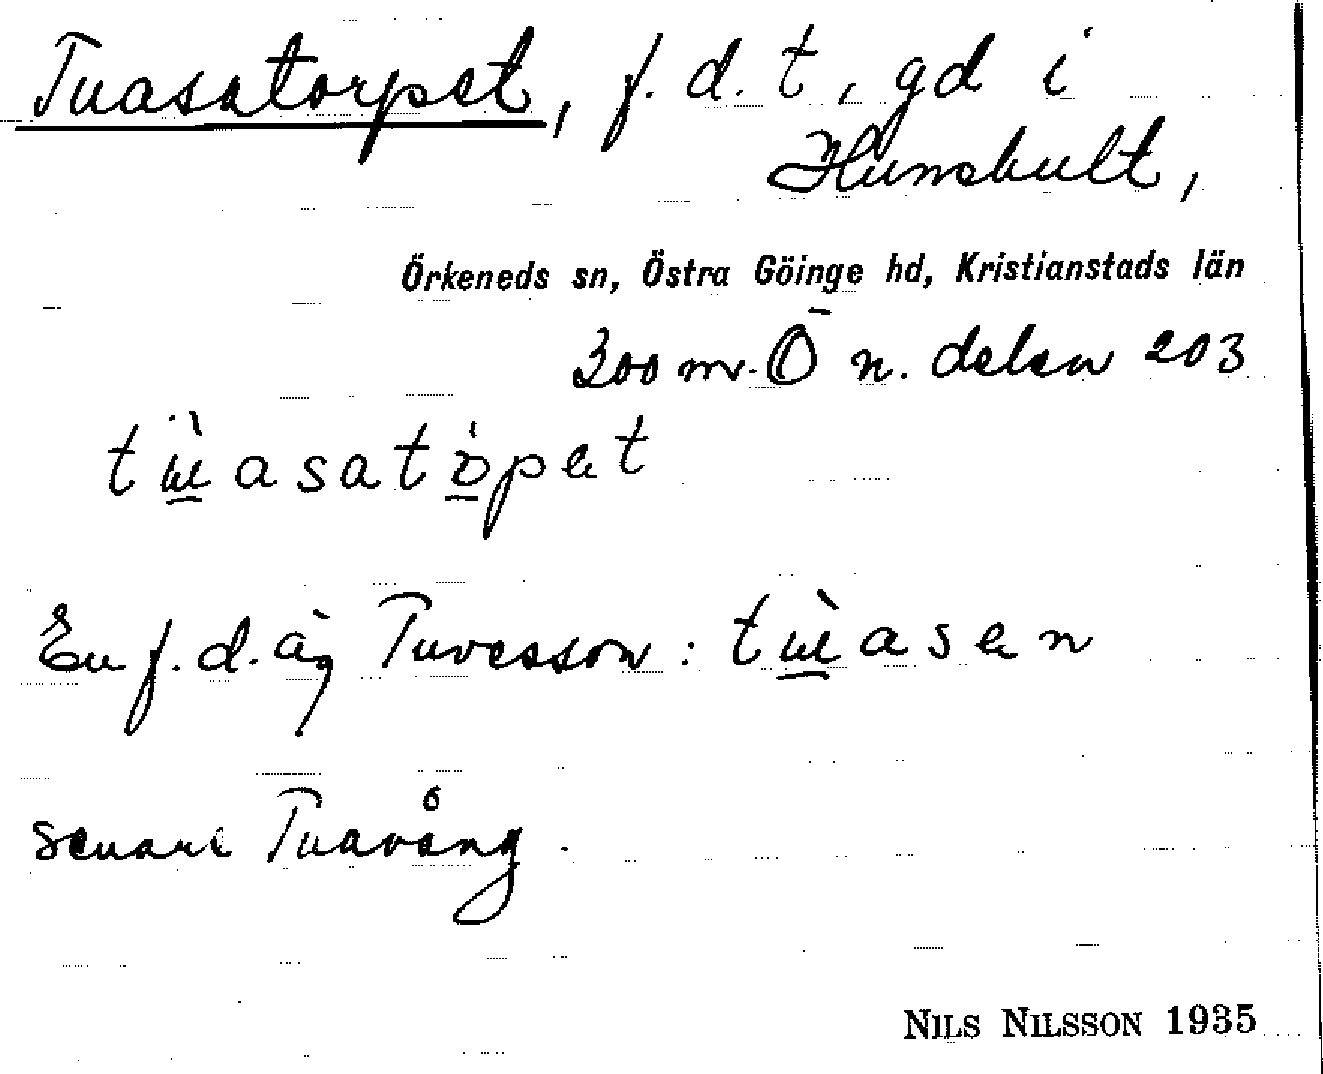 Tuasatorpet, f. d. t, gd i
Hunshult,
Örkeneds sn, Östra Göinge hd, Kristianstads län
300 m. Ö n. delen 203
tùasatópet
En f. d. äg Tuvesson: tùasen
senare Tuavång.
NILS NILSSON 1935